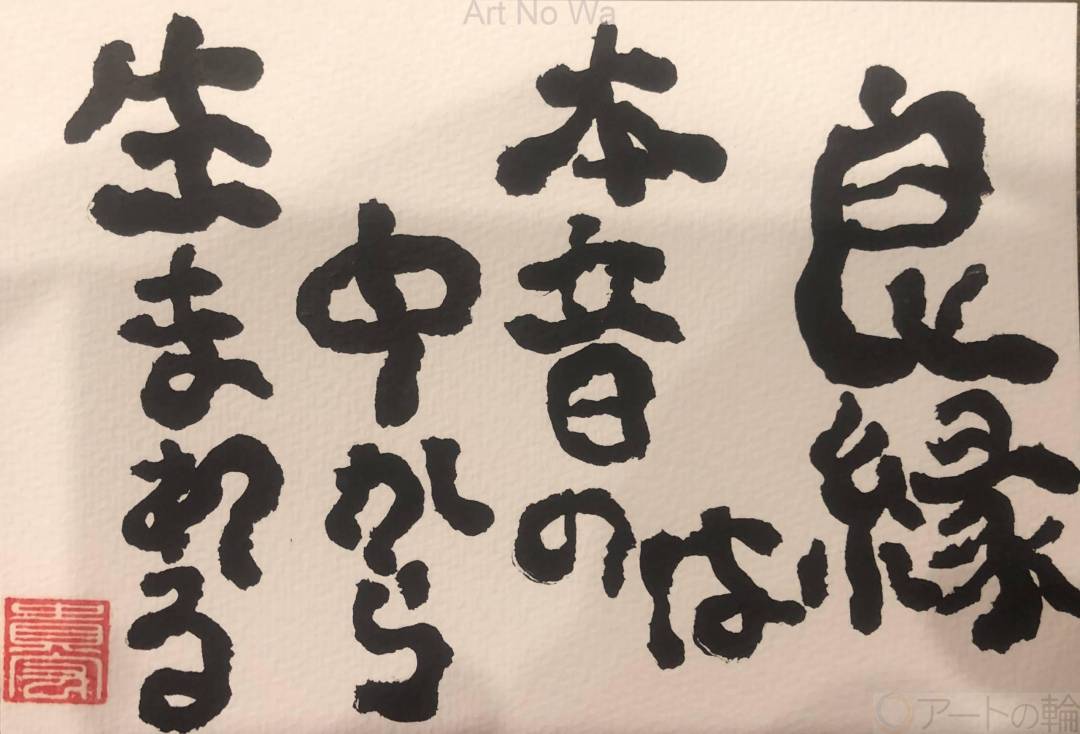 Art No Wa
良縁は
本音の
中から
生まれる
アートの輪